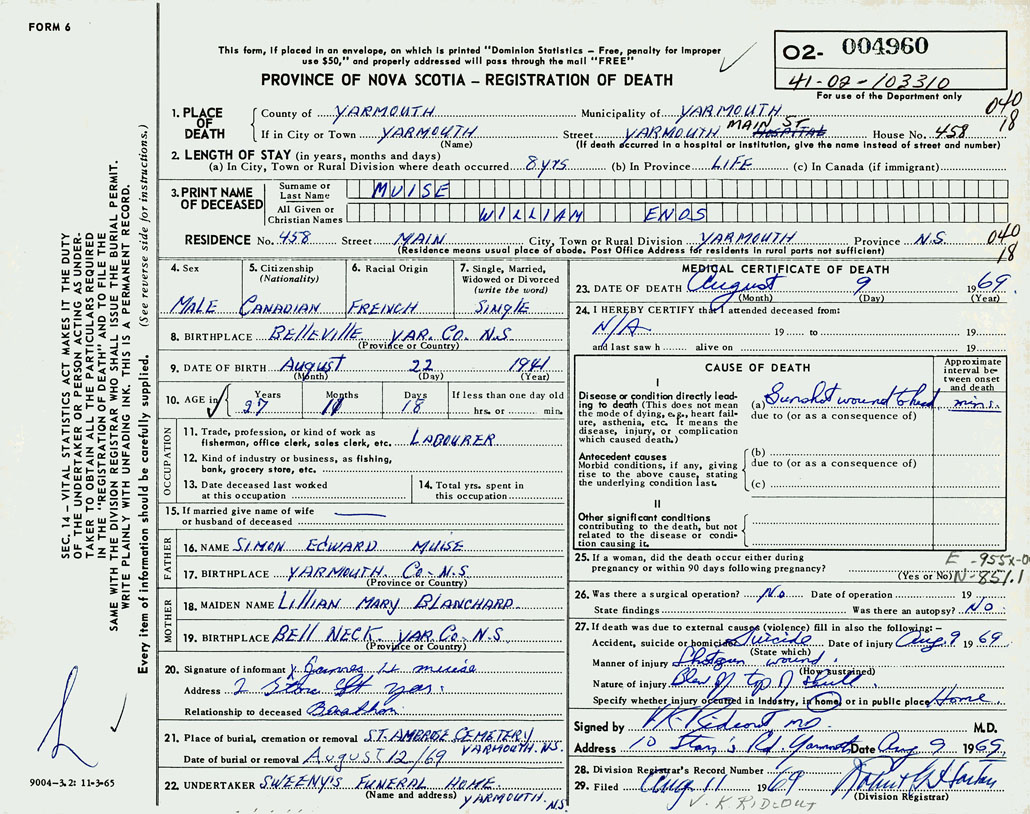 FORM 6
This form, if placed in an envelope, on which is printed "Dominion Statistics – Free, penalty for improper
use $50," and properly addressed will pass through the mail "FREE"
PROVINCE OF NOVA SCOTIA – REGISTRATION OF DEATH
O2- 004960
41-02-103310
For use of the Department only
040
18
1. PLACE OF DEATH
County of YARMOUTH Municipality of YARMOUTH
If in City or Town YARMOUTH Street YARMOUTH HOSPITAL MAIN ST House No. 458
(Name) (If death occurred in a hospital or institution, give the name instead of street and number)
2. LENGTH OF STAY (in years, months and days)
(a) In City, Town or Rural Division where death occurred 8 yrs (b) In Province LIFE (c) In Canada (if immigrant)
3. PRINT NAME OF DECEASED
Surname or Last Name MUISE
All Given or Christian Names WILLIAM ENOS
RESIDENCE No. 458 Street MAIN City, Town or Rural Division YARMOUTH Province N.S.
040
18
(Residence means usual place of abode. Post Office Address for residents in rural parts not sufficient)
4. Sex
MALE
5. Citizenship
(Nationality)
CANADIAN
6. Racial Origin
FRENCH
7. Single, Married,
Widowed or Divorced
(write the word)
SINGLE
8. BIRTHPLACE BELLEVILLE YAR. CO. N.S
(Province or Country)
9. DATE OF BIRTH August 22 1941
(Month) (Day) (Year)
10. AGE in Years Months Days If less than one day old
27 11 18 hrs. or min.
OCCUPATION
11. Trade, profession, or kind of work as
fisherman, office clerk, sales clerk, etc. LABOURER
12. Kind of industry or business, as fishing,
bank, grocery store, etc.
13. Date deceased last worked
at this occupation
14. Total yrs. spent in
this occupation
15. If married give name of wife
or husband of deceased
FATHER
16. NAME SIMON EDWARD MUISE
17. BIRTHPLACE YARMOUTH. CO - N.S
(Province or Country)
MOTHER
18. MAIDEN NAME LILLIAN MARY BLANCHARD
19. BIRTHPLACE BELL NECK. YAR. CO - N.S
(Province or Country)
20. Signature of informant x James H muise
Address 2 St yar.
Relationship to deceased Brother
21. Place of burial, cremation or removal ST. AMBROSE CEMETERY
YARMOUTH. N.S.
Date of burial or removal AUGUST 12/69
22. UNDERTAKER SWEENY'S FUNERAL HOME.
(Name and address) YARMOUTH. N.S.
MEDICAL CERTIFICATE OF DEATH
23. DATE OF DEATH August 9 1969
(Month) (Day) (Year)
24. I HEREBY CERTIFY that I attended deceased from:
N/A 19 to 19
and last saw h alive on 19
CAUSE OF DEATH
Approximate interval between onset and death
I
Disease or condition directly leading to death (This does not mean the mode of dying, e.g., heart failure, asthenia, etc. It means the disease, injury, or complication which caused death.)
(a) Gunshot wound to head mins.
due to (or as a consequence of)
Antecedent causes
Morbid conditions, if any, giving rise to the above cause, stating the underlying condition last.
(b)
due to (or as a consequence of)
(c)
II
Other significant conditions
contributing to the death, but not related to the disease or condition causing it.
25. If a woman, did the death occur either during
pregnancy or within 90 days following pregnancy?
(Yes or No)
E-955x-0
N-851.1
26. Was there a surgical operation? No Date of operation 19
State findings Was there an autopsy? NO
27. If death was due to external causes (violence) fill in also the following:–
Accident, suicide or homicide Suicide Date of injury Aug. 9 1969
(State which)
Manner of injury Shotgun wound
(How sustained)
Nature of injury Blew off top of skull.
Specify whether injury occurred in industry, in home, or in public place Home
Signed by V.K. Rideout MD. M.D.
Address 10 Starr's Rd Yarmouth Date Aug 9 1969
28. Division Registrar's Record Number
29. Filed Aug 11 1969
(Division Registrar)
V. K RIDEOUT
SEC. 14 – VITAL STATISTICS ACT MAKES IT THE DUTY
OF THE UNDERTAKER OR PERSON ACTING AS UNDER-
TAKER TO OBTAIN ALL THE PARTICULARS REQUIRED
IN THE "REGISTRATION OF DEATH" AND TO FILE THE
SAME WITH THE DIVISION REGISTRAR WHO SHALL ISSUE THE BURIAL PERMIT.
WRITE PLAINLY WITH UNFADING INK. THIS IS A PERMANENT RECORD.
Every item of information should be carefully supplied. (See reverse side for instructions.)
9004-3.2: 11-3-65